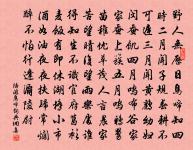 野人無曆日鳥啼知四
時二月聞子規春耕不
可遲三月聞黃鸝幼婦
閔蠶飢四月鳴布穀家
家蠶上簇五月鳴鴉舅
苗稚憂草茂人言農家
苦望晴復望雨樂處誰
得知生不識官府葛衫
麥飯有即休湖橋小市
酒如油夜夜扶歸常爛
醉不怕行逢灞陵尉